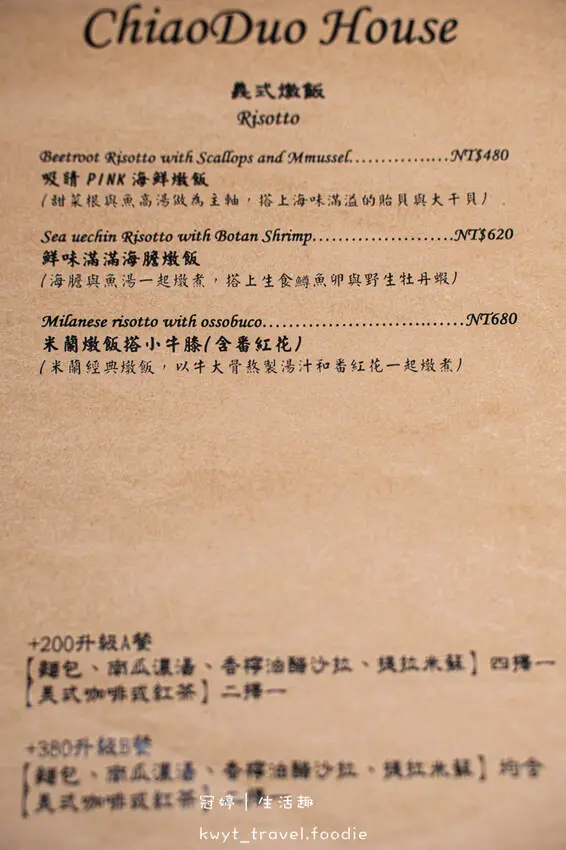 ChiaoDuo House
義式燉飯
Risotto
Beetroot Risotto with Scallops and Mmussel................NT$480
吸睛PINK海鮮燉飯
(甜菜根與魚高湯做為主軸，搭上海味滿溢的貽貝與大干貝)
Sea uechin Risotto with Botan Shrimp.....................NT$620
鮮味滿滿海膽燉飯
(海膽與魚湯一起燉煮，搭上生食鱒魚卵與野生牡丹蝦)
Milanese risotto with ossobuco..............................NT680
米蘭燉飯搭小牛膝(含番紅花)
(米蘭經典燉飯，以牛大骨熬製湯汁和番紅花一起燉煮)
+200升級A餐
【麵包、南瓜濃湯、香檸油醋沙拉、提拉米蘇】四擇一
【美式咖啡或紅茶】二擇一
+380升級B餐
【麵包、南瓜濃湯、香檸油醋沙拉、提拉米蘇】均含
【美式咖啡或紅茶】
冠婷｜生活趣
kwyt_travel.foodie